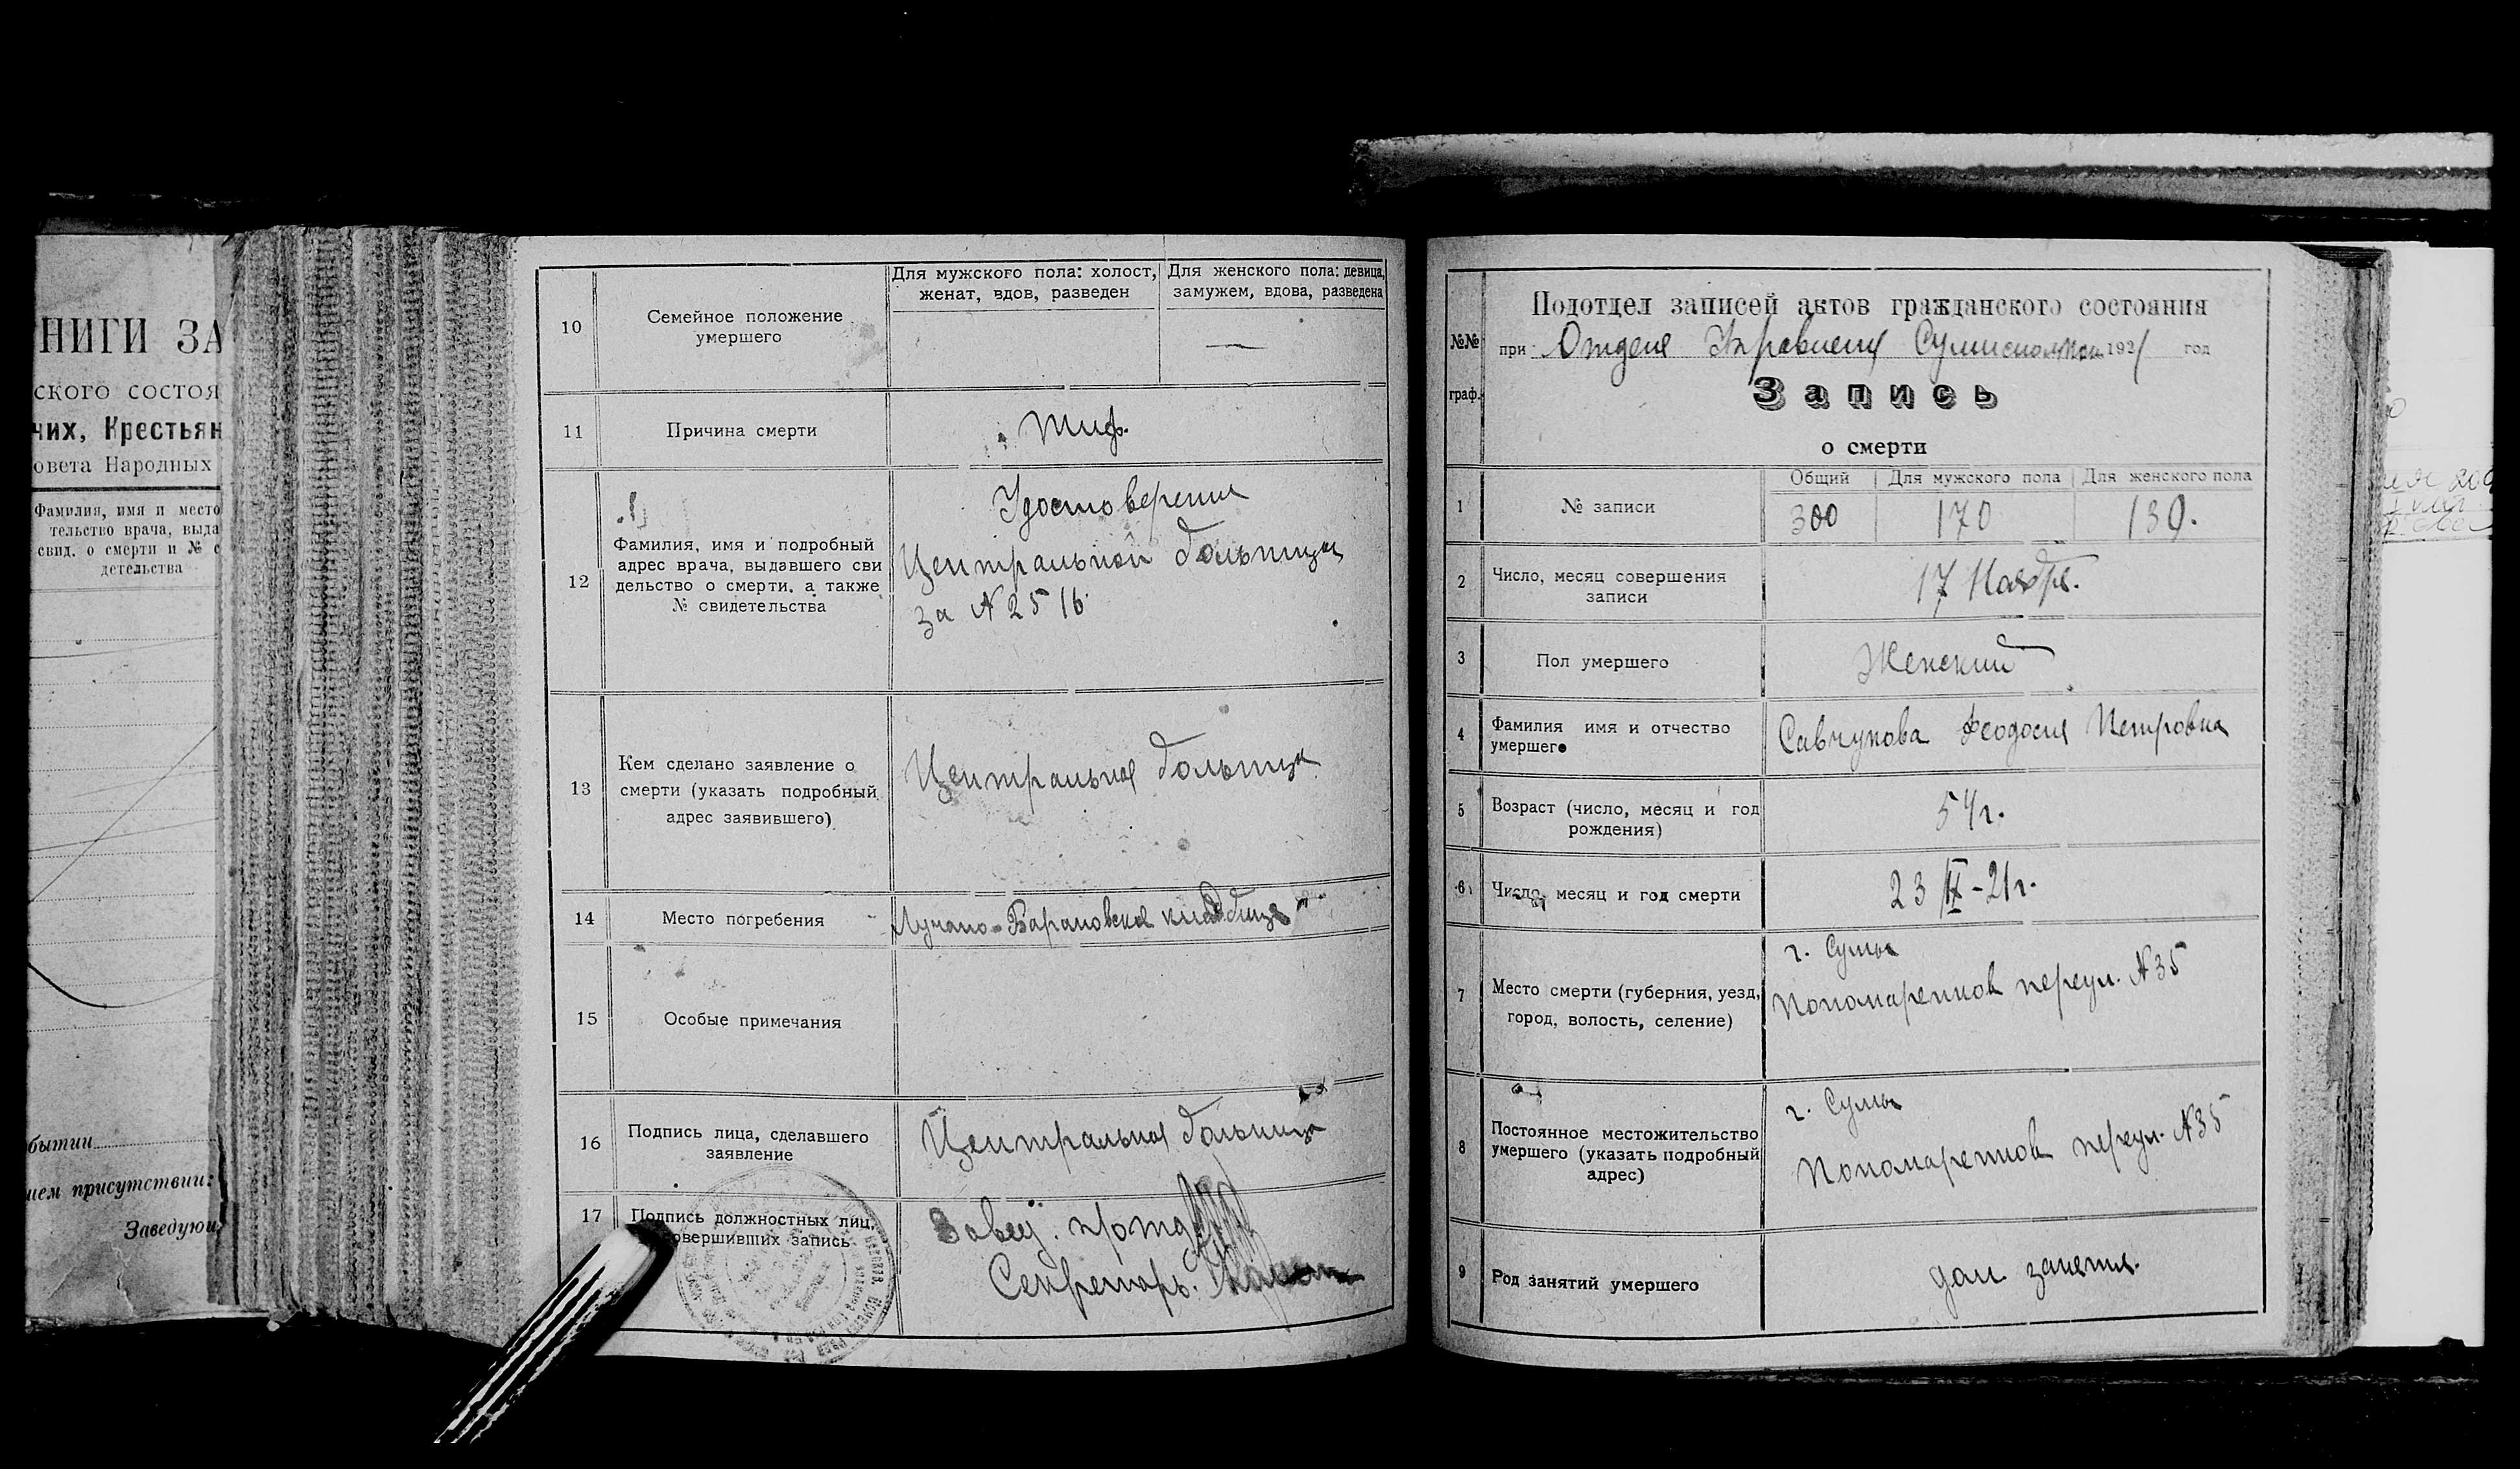 НИГИ ЗА
ского состоя
чих, Крестьян
овета Народных
Фамилия, имя и место
тельство врача, выда
свид. о смерти и № с
детельства
бытии
ием присутствии:
Заведую
10
Семейное положение
умершего
Для мужского пола: холост,
женат, вдов, разведен
Для женского пола: девица,
замужем, вдова, разведена
—
11
Причина смерти
Тиф.
12
Фамилия, имя и подробный
адрес врача, выдавшего сви
дельство о смерти, а также
№ свидетельства
Удостоверения
Центральной больницы
за № 2516
13
Кем сделано заявление о
смерти (указать подробный
адрес заявившего)
Центральная больница
14
Место погребения
Барановское кладбище
15
Особые примечания
16
Подпись лица, сделавшего
заявление
Центральная больница
17
Подпись должностных лиц,
овершивших запись
Завед. п/отд
Секретарь.
№№
граф.
Подотдел записей актов гражданского состояния
при Отделе Управления 1921 год
Запись
о смерти
1
№ записи
Общий
Для мужского пола
Для женского пола
300
170
130.
2
Число, месяц совершения
записи
17 Ноября.
3
Пол умершего
Женский
4
Фамилия имя и отчество
умершего
Савчукова Феодосия Петровна
5
Возраст (число, месяц и год
рождения)
54 г.
6
Число, месяц и год смерти
23 IX - 21 г.
7
Место смерти (губерния, уезд,
город, волость, селение)
г. Сумы
Пономаренков переул. № 35
8
Постоянное местожительство
умершего (указать подробный
адрес)
г. Сумы
Пономаренков переул. № 35
9
Род занятий умершего
дом занятия.